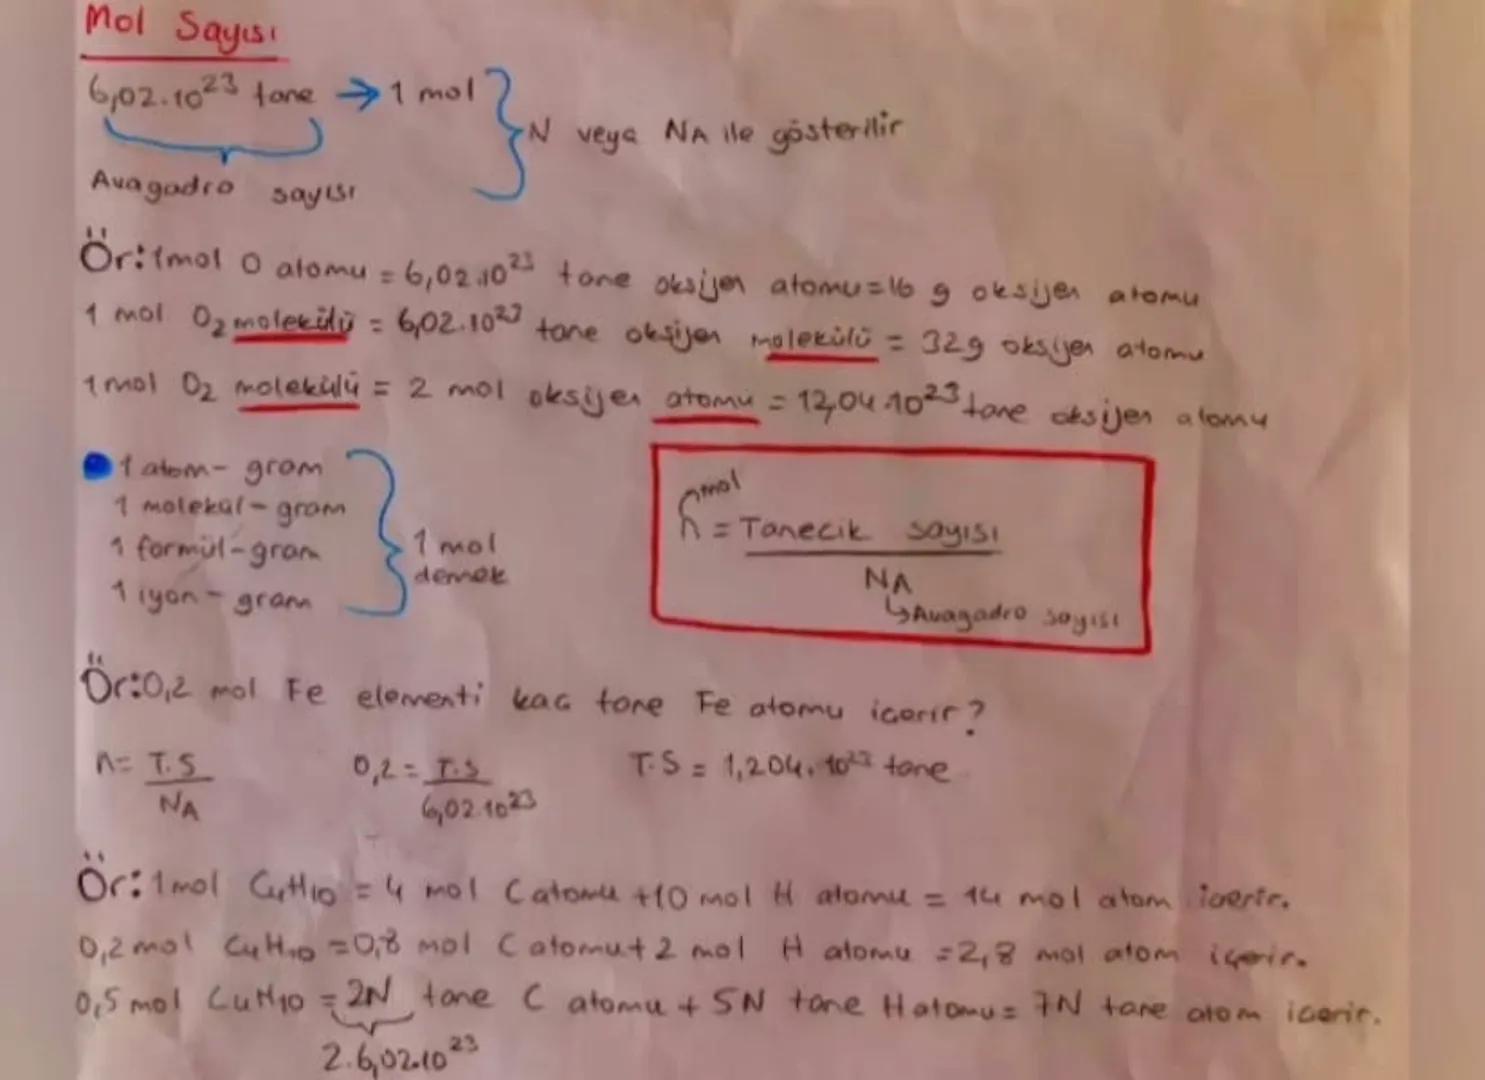 Mol Sayısı
6,02.10²³ tane → 1 mol
N veya NA ile gösterilir
Avagadro sayısı
Ör: 1mol O atomu = 6,02.10²³ tane oksijen atomu = 16 g oksijen atomu
1 mol O₂ molekülü = 6,02.10²³ tane oksijen molekülü = 32g oksijen atomu
1 mol O₂ molekülü = 2 mol oksijen atomu = 12,04.10²³ tane oksijen atomu
1 atom-gram
1 molekül-gram
1 formül-gram
1 iyon-gram
1 mol
demek
mol
n = Tanecik sayısı
NA
↳Avagadro sayısı
Ör: 0,2 mol Fe elementi kac tane Fe atomu icerir?
n = T.S
NA
0,2 = T.S
6,02.10²³
T.S = 1,204.10²³ tane
Ör: 1mol C₄H₁₀ = 4 mol C atomu + 10 mol H atomu = 14 mol atom icerir.
0,2 mol C₄H₁₀ = 0,8 mol C atomu + 2 mol H atomu = 2,8 mol atom içerir.
0,5 mol C₄H₁₀ = 2N tane C atomu + 5N tane H atomu = 7N tane atom icerir.
2.6,02.10²³